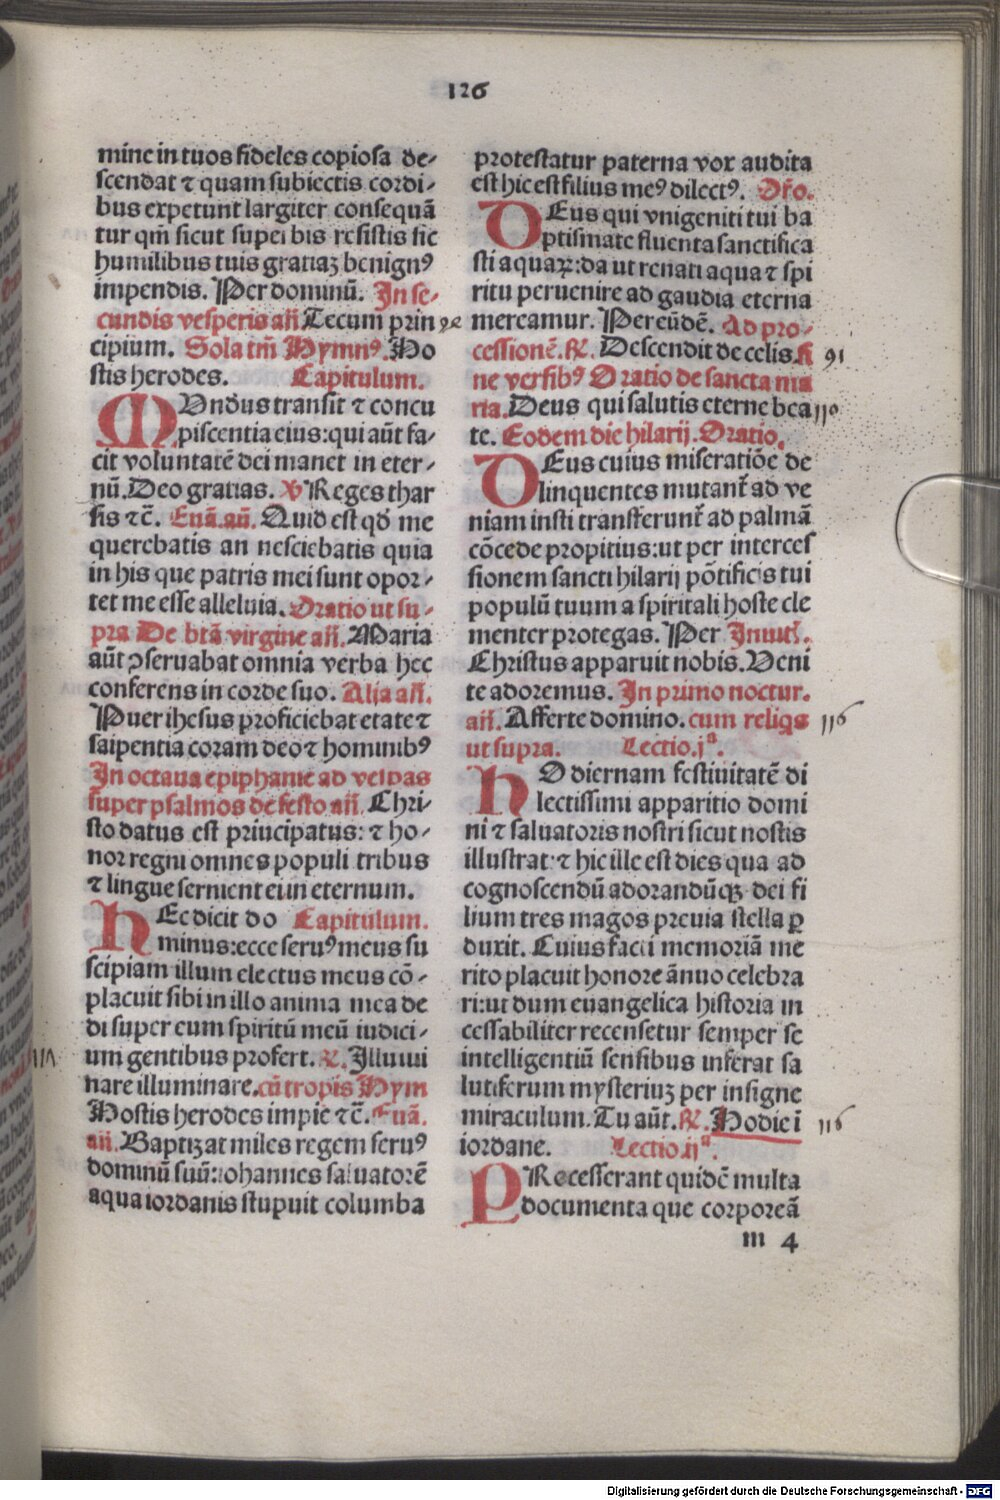 126
mine in tuos fideles copiosa de-
scendat ⁊ quam subiectis cordi-
bus expetunt largiter consequā
tur qm̄ sicut supeibis resistis sic
humilibus tuis gratiaꝫ benignꝰ
impendis. Per dominū. In se-
cundis vesperis añ Tecum prin
cipium. Sola tm̄ Hymnꝰ. Ho
stis herodes. Capitulum.
MVndus transit ⁊ concu
piscentia eius: qui aūt fa-
cit voluntatē dei manet in eter-
nū. Deo gratias. V Reges thar
sis ⁊c̄. Euā. añ. Quid est qd̄ me
querebatis an nesciebatis quia
in his que patris mei sunt opor-
tet me esse alleluia. Oratio ut su-
pra De btā virgine añ. Maria
aūt ꝯseruabat omnia verba hec
conferens in corde suo. Alia añ.
Puer ihesus proficiebat etate ⁊
saipentia coram deo ⁊ hominibꝰ
In octaua epiphanie ad vespas
super psalmos de festo añ. Chri-
sto datus est priucipatus: ⁊ ho-
nor regni omnes populi tribus
⁊ lingue seruient ei in eternum.
HEc dicit do Capitulum.
minus: ecce seruꝰ meus su
scipiam illum electus meus cō-
placuit sibi in illo anima mea de
di super eum spiritū meū iudici-
um gentibus profert. ℟. Illumi
nare illuminare. cū tropis Hym
Hostis herodes impie ⁊c̄. Euā.
añ. Baptizat miles regem seruꝰ
dominū suū: iohannes saluatorē
aqua iordanis stupuit columba
protestatur paterna vox audita
est hic est filius meꝰ dilectꝰ. Or̄o.
DEus qui vnigeniti tui ba
ptismate fluenta sanctifica
sti aquaꝝ: da ut renati aqua ⁊ spi
ritu peruenire ad gaudia eterna
mereamur. Per eūdē. Ad pro-
cessionē. ℟. Descendit de celis. si 91
ne versibꝰ Oratio de sancta ma
ria. Deus qui salutis eterne bea 110
te. Eodem die hilarij. Oratio.
DEus cuius miseratiōe de
linquentes mutant̄ ad ve
niam iusti transferunt̄ ad palmā
cōcede propitius: ut per interces
sionem sancti hilarij pōtificis tui
populū tuum a spiritali hoste cle
menter protegas. Per Inuit̄.
Christus apparuit nobis. Veni
te adoremus. In primo noctur.
añ. Afferte domino. cum reliqs 116
ut supra. Lectio. jª.
HO diernam festiuitatē di
lectissimi apparitio domi
ni ⁊ saluatoris nostri sicut nostis
illustrat: ⁊ hic ille est dies qua ad
cognoscendū adorandūqꝫ dei fi
lium tres magos preuia stella ꝑ
duxit. Cuius facti memoriā me
rito placuit honore ānuo celebra
ri: ut dum euangelica historia in
cessabiliter recensetur semper se
intelligentiū sensibus inferat sa
lutiferum mysteriuꝫ per insigne
miraculum. Tu aūt. ℟. Hodie ī 116
iordane. Lectio. ijª.
PRecesserant quidē multa
documenta que corporeā
m 4
Digitalisierung gefördert durch die Deutsche Forschungsgemeinschaft - DFG